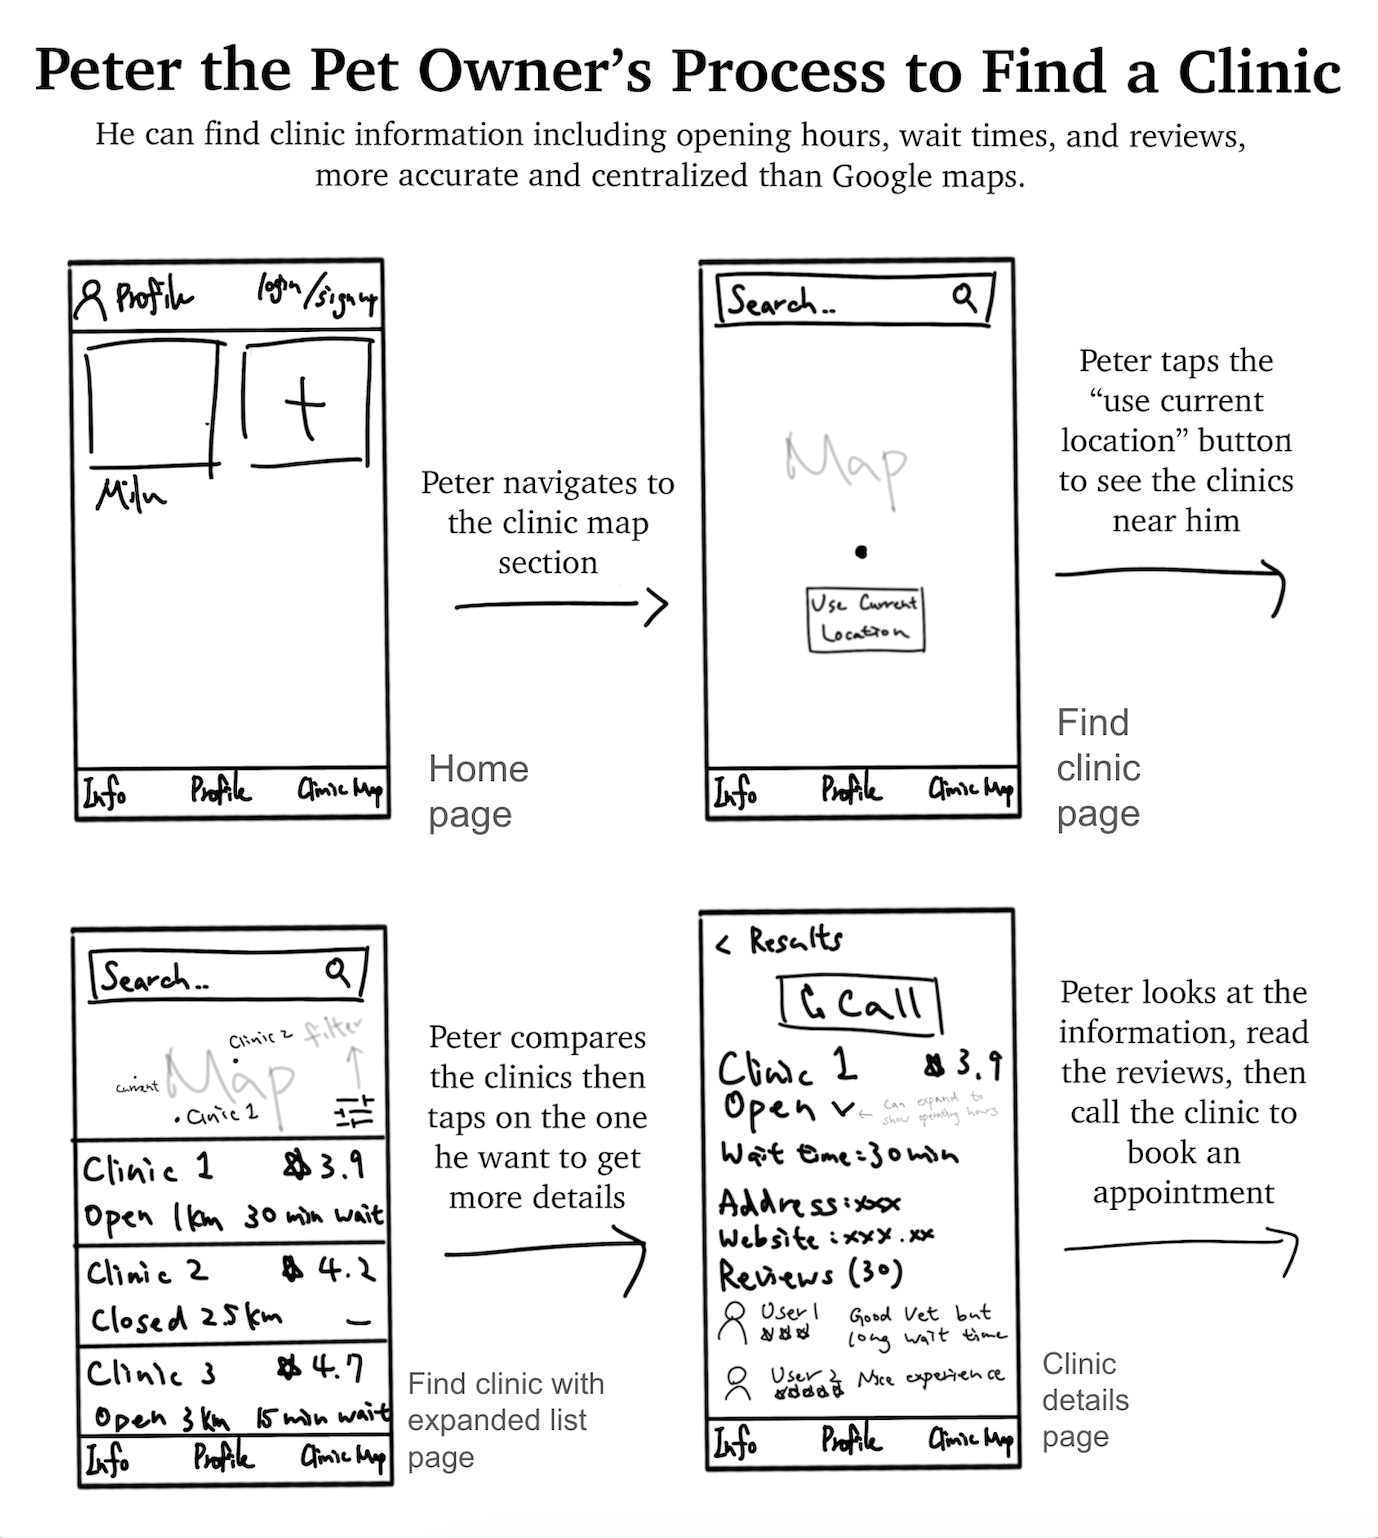 Peter the Pet Owner's Process to Find a Clinic
He can find clinic information including opening hours, wait times, and reviews,
more accurate and centralized than Google maps.
Profile login/signup
+
Peter navigates to
the clinic map
section
Info Profile Clinic Map
Home
page
Search..
Map
Use Current
Location
Info Profile Clinic Map
Peter taps the
“use current
location” button
to see the clinics
near him
Find
clinic
page
Search..
Clinic 2 filter
current Map
Clinic 1
Clinic 1 3.9
Open 1km 30 min wait
Clinic 2 4.2
Closed 2.5km –
Clinic 3 4.7
Open 3km 15 min wait
Info Profile Clinic Map
Peter compares
the clinics then
taps on the one
he want to get
more details
Find clinic with
expanded list
page
< Results
Call
Clinic 1 3.9
Open ← can expand to
show operating hours
Wait time:30min
Address:xxx
Website:xxx.xx
Reviews (30)
User1 Good Vet but
long wait time
User2 Nice experience
Info Profile Clinic Map
Peter looks at the
information, read
the reviews, then
call the clinic to
book an
appointment
Clinic
details
page